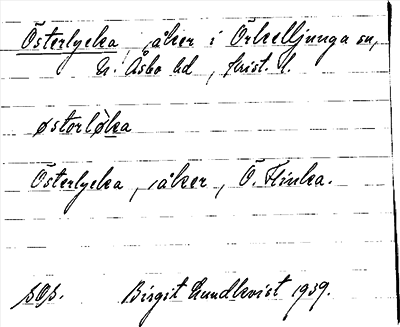 Österlycka, åker i Örkelljunga sn,
N. Åsbo hd, Krist. l.
østorlø̀ka
Österlycka, åker, Ö. Flinka.
sOs. Birgit Lundkvist 1939.